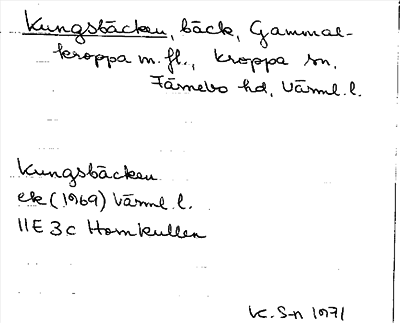 Kungsbäcken, bäck, Gammal-
kroppa m.fl., Kroppa sn,
Färnebo hd, Värml.l.
Kungsbäcken
ek (1969) Värml.l.
11E 3c Hornkullen
K.S-n 1971